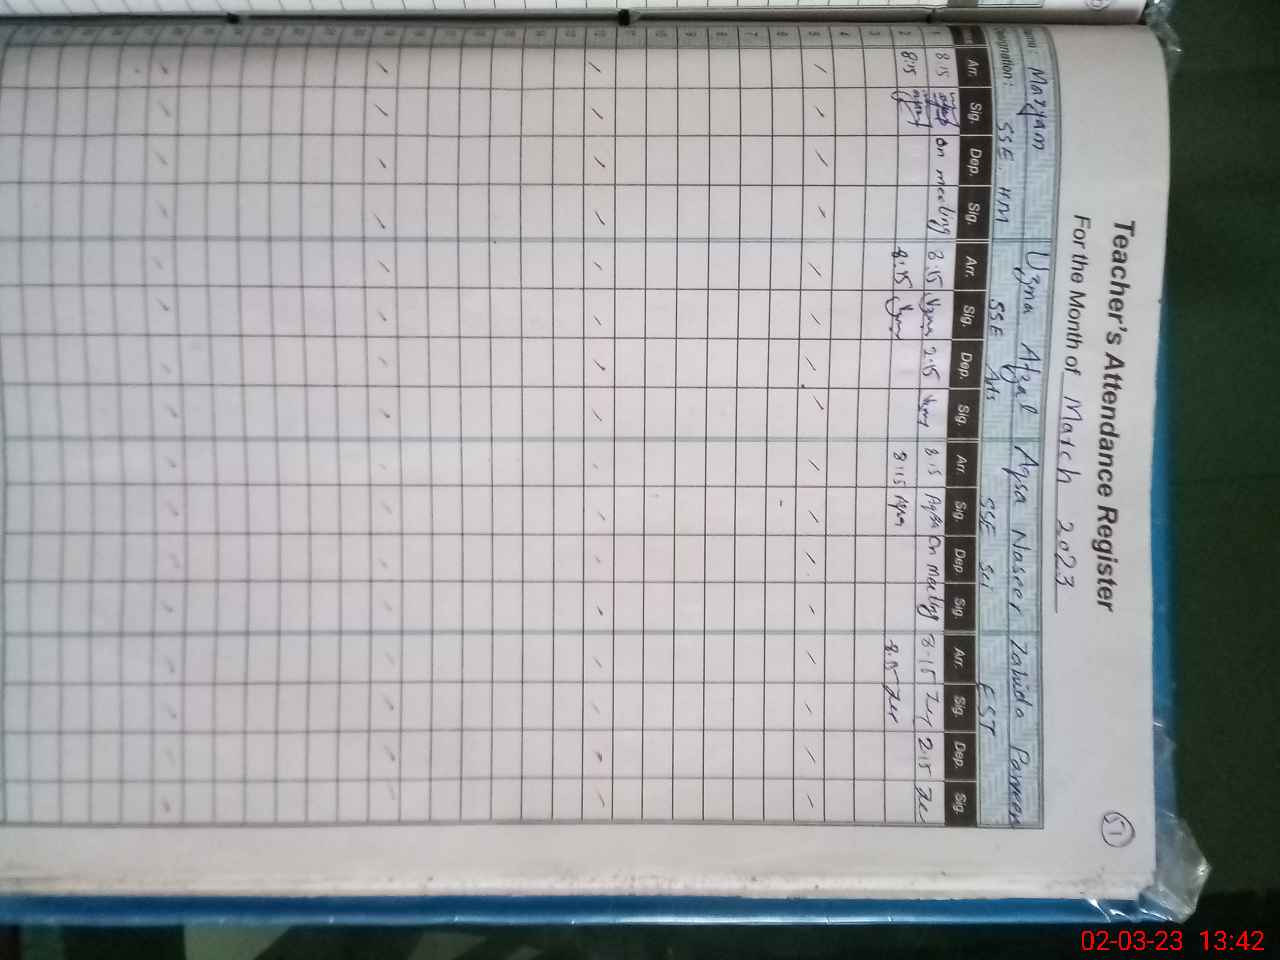 Teacher's Attendance Register
For the Month of March 2023
51
Name: Maryam Uzma Afzal Aqsa Naseer Zahida Parveen
Designation: SSE. HM SSE Arts SSE Sci EST
Arr. Sig. Dep. Sig. Arr. Sig. Dep. Sig. Arr. Sig. Dep Sig. Arr. Sig. Dep. Sig.
1 8:15 On meeting 8:15 Uzma 2:15 8:15 Aqsa On meeting 8-15 2:15
2 8:15 8:15 Uzma 8:15 Aqsa 8:15
3
4
5
6
7
8
9
10
11
12
02-03-23 13:42